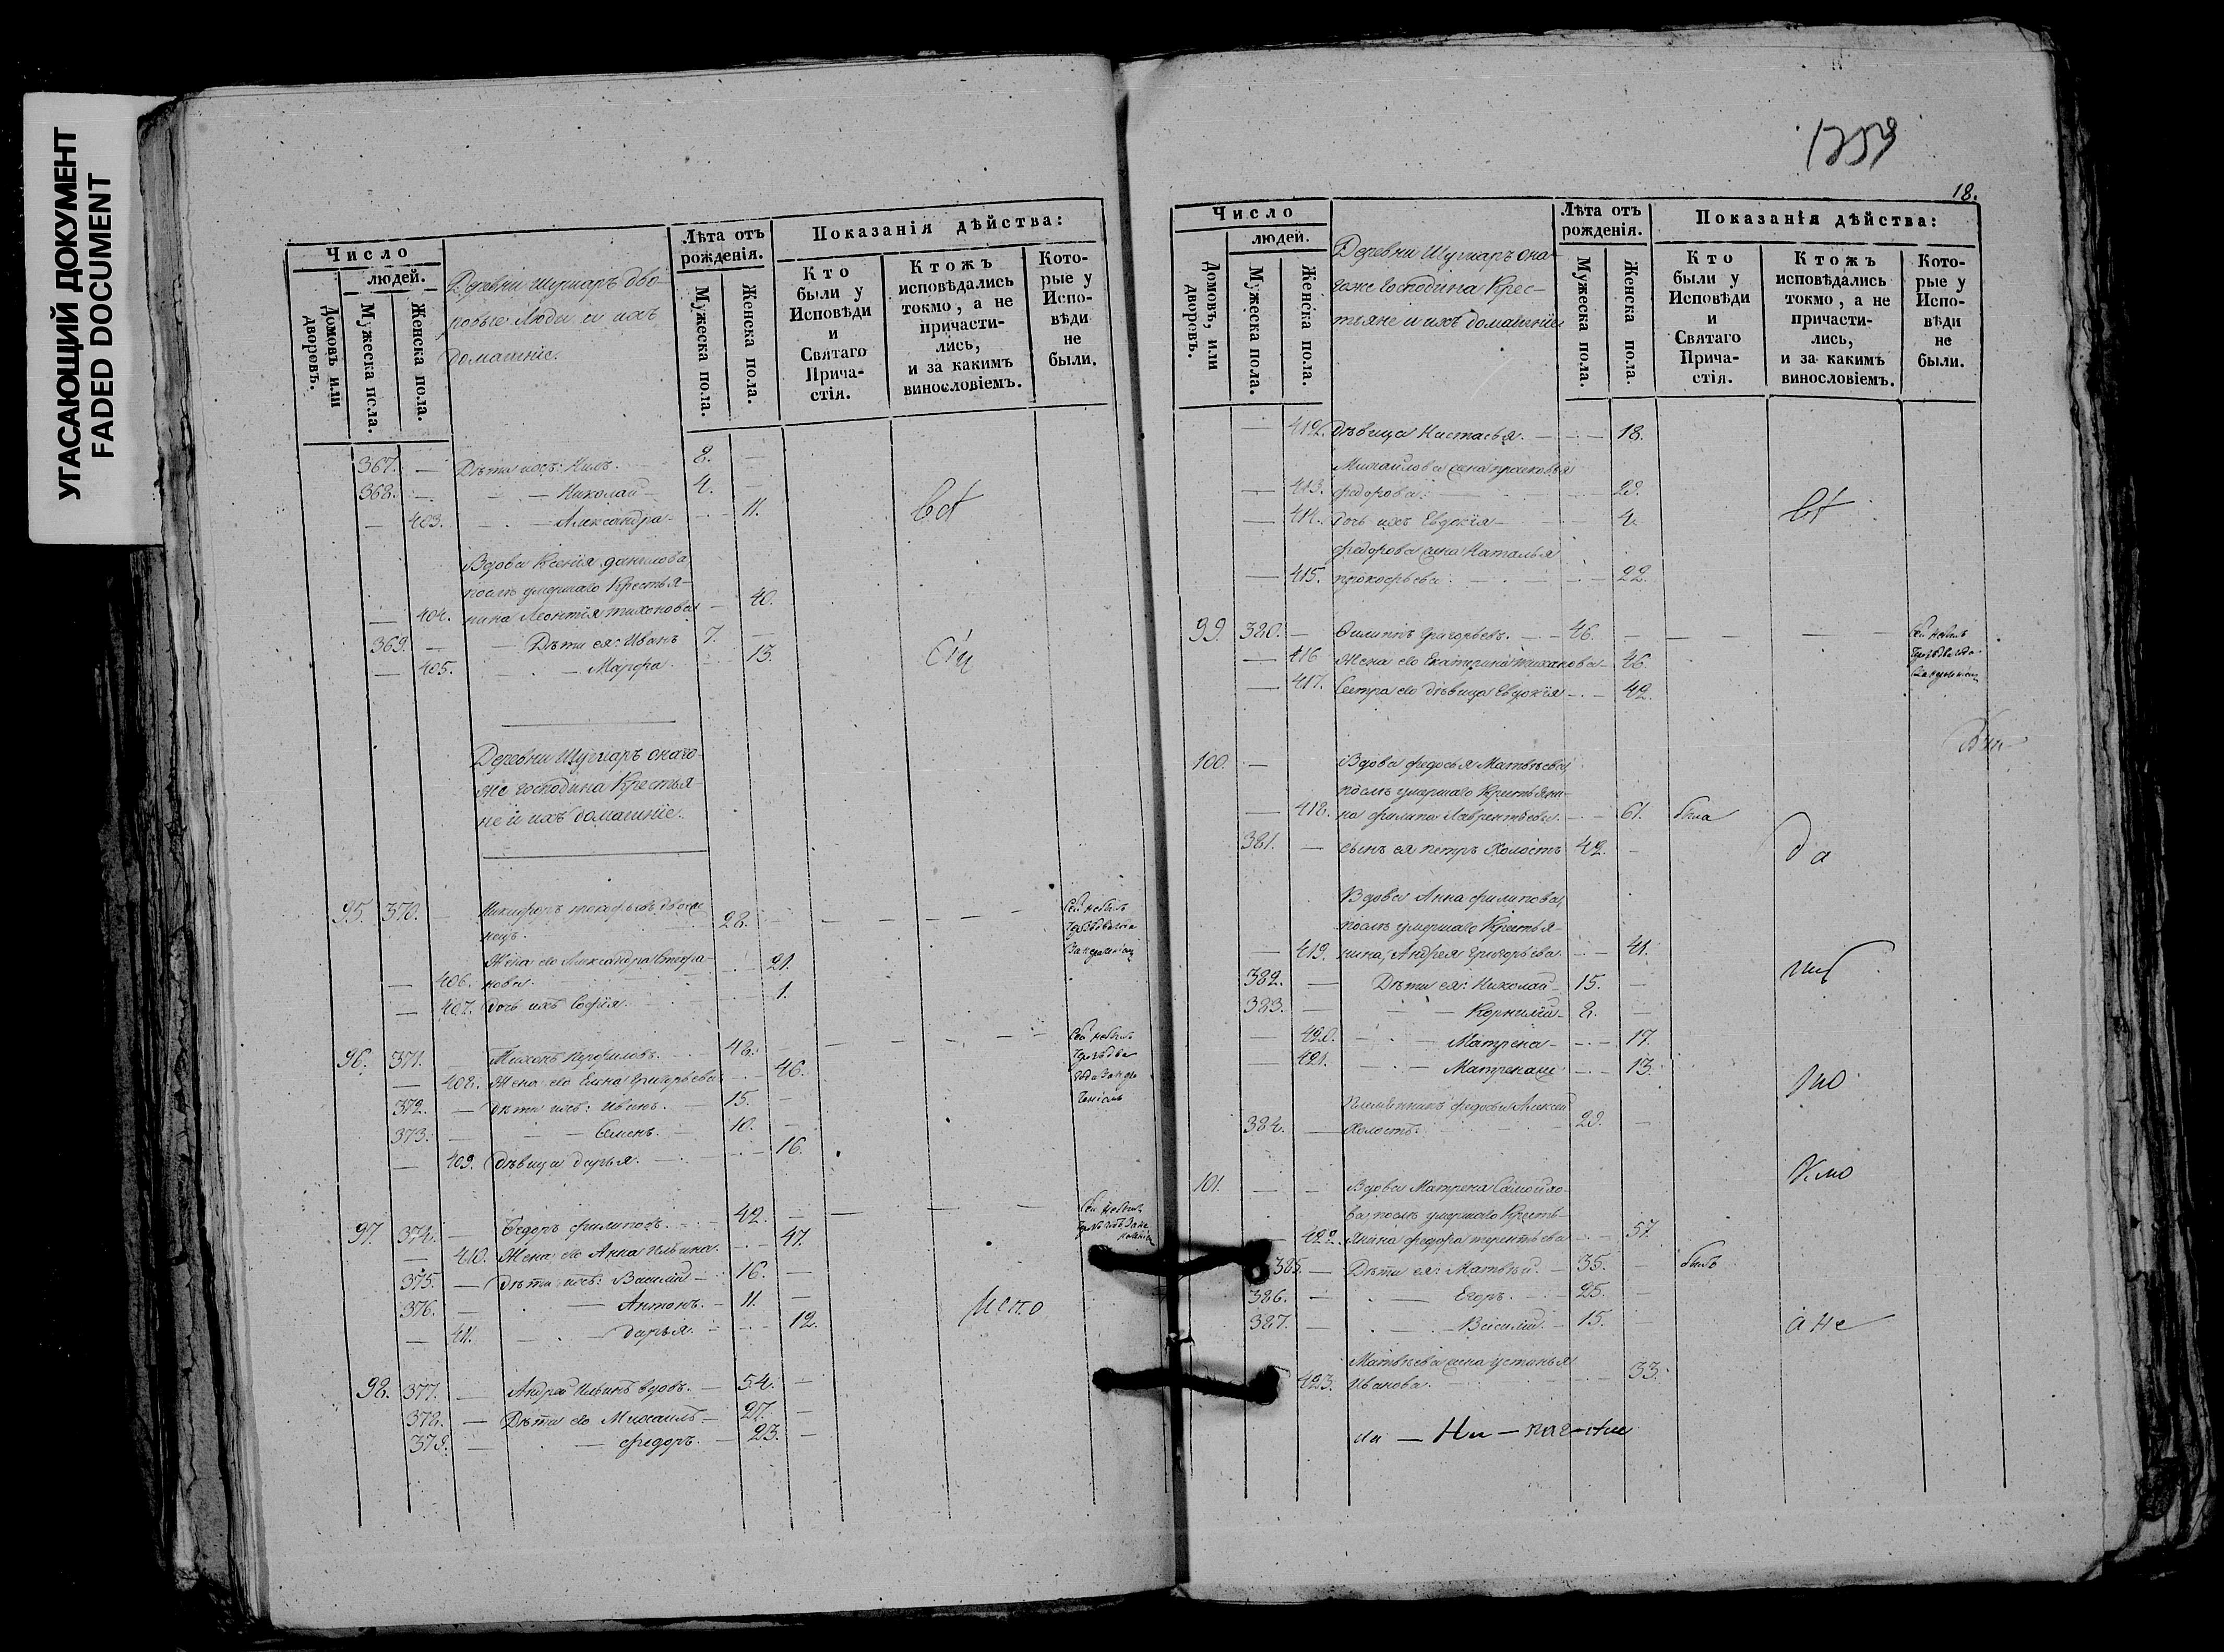 УГАСАЮЩИЙ ДОКУМЕНТ
FADED DOCUMENT
Число
людей.
Домовъ или дворовъ.
Мужеска пола.
Женска пола.
Деревни Шумаръ дво-
ровые люди и ихъ
домашніе.
Лѣта отъ рожденія.
Мужеска пола.
Женска пола.
Показанія дѣйства:
Кто были у Исповѣди и Святаго Прича-стія.
Ктожъ исповѣдались токмо, а не причасти-лись, и за какимъ винословіемъ.
Кото-рые у Испо-вѣди не были.
367. — Дѣти ихъ: Нилъ. 8. —
368. — — Николай — 4. —
— 403. — Александра — — 11.
Вдова Ксенія Данилова
послѣ умершаго Крестья-
— 404. нина Леонтія Тихонова — 40.
369. — Дѣти ея: Иванъ 7. —
— 405. — Марфа — 13.
Деревни Шумаръ онаго
же господина Крестья-
не и ихъ домашніе.
95. 370. — Никифоръ
28. — — — — — Сей небылъ
Жена его Александра
— 406. нова. — 21.
— 407. дочь ихъ Софія. — 1.
96. 371. — Тихонъ 48. — — — — — Сей небылъ
— 408. Жена его Елена Григорьева — 46.
372. — Дѣти ихъ: Иванъ. — 15. —
373. — — Семенъ. — 10. —
— 409. дѣвица Дарья. — — 16.
97. 374. — Федоръ Филиповъ. — 42. — — — — Сей небылъ
— 410. Жена его Анна Ильина. — — 47.
375. — Дѣти ихъ: Василій — 16. —
376. — — Антонъ. — 11. —
— 411. — Дарья. — — 12.
98. 377. — Андрей Ильинъ вдовъ. — 54. —
378. — Дѣти его Михаилъ — 27. —
379. — — Федоръ. — 23. —
1259
18.
Число
людей.
Домовъ, или дворовъ.
Мужеска пола.
Женска пола.
Деревни Шумаръ она-
гоже Господина Крес-
тьяне и ихъ домашніе
Лѣта отъ рожденія.
Мужеска пола.
Женска пола.
Показанія дѣйства:
Кто были у Исповѣди и Святаго Прича-стія.
Ктожъ исповѣдались токмо, а не причасти-лись, и за какимъ винословіемъ.
Кото-рые у Испо-вѣди не были.
— 412. дѣвица Настасья. — — 18.
Михайлова жена Прасковья
— 413. Федорова. — — 29.
— 414. дочь ихъ Евдокія — — 4.
Федорова жена Наталья
— 415. Прокофьева. — — 22.
99 380. — Филиппъ Григорьевъ. — 46. — — — — Сей небылъ
— 416 Жена его Екатерина Тихонова — 46.
— 417. Сестра его дѣвица Евдокія — — 42.
100. — Вдова Федосья Матвѣева,
послѣ умершаго Крестьяни-
— 418. на Филипа Лаврентьева. — — 61. была
381. — сынъ ея Петръ Холостъ 42. —
да
Вдова Анна Филипова,
послѣ умершаго Крестья-
— 419. нина, Андрея Григорьева. — — 41.
382. — Дѣти ея: Николай — 15. —
383. — — Корнилій — 8. —
— 420. — Матрена — — 17.
— 421. — Матрена — — 13.
Племянникъ Федосьи Алексей
384. — Холостъ. — 29. —
101. — — Вдова Матрена Самойло-
ва, послѣ умершаго Кресть-
— 422. янина Федора Терентьева — 57.
385. — Дѣти ея: Матвѣй. — 35. — былъ
386. — — Егоръ. — 25. —
387. — — Василій. — 15. —
а не
Матвѣева жена Устинья
423. Иванова. — — 33.